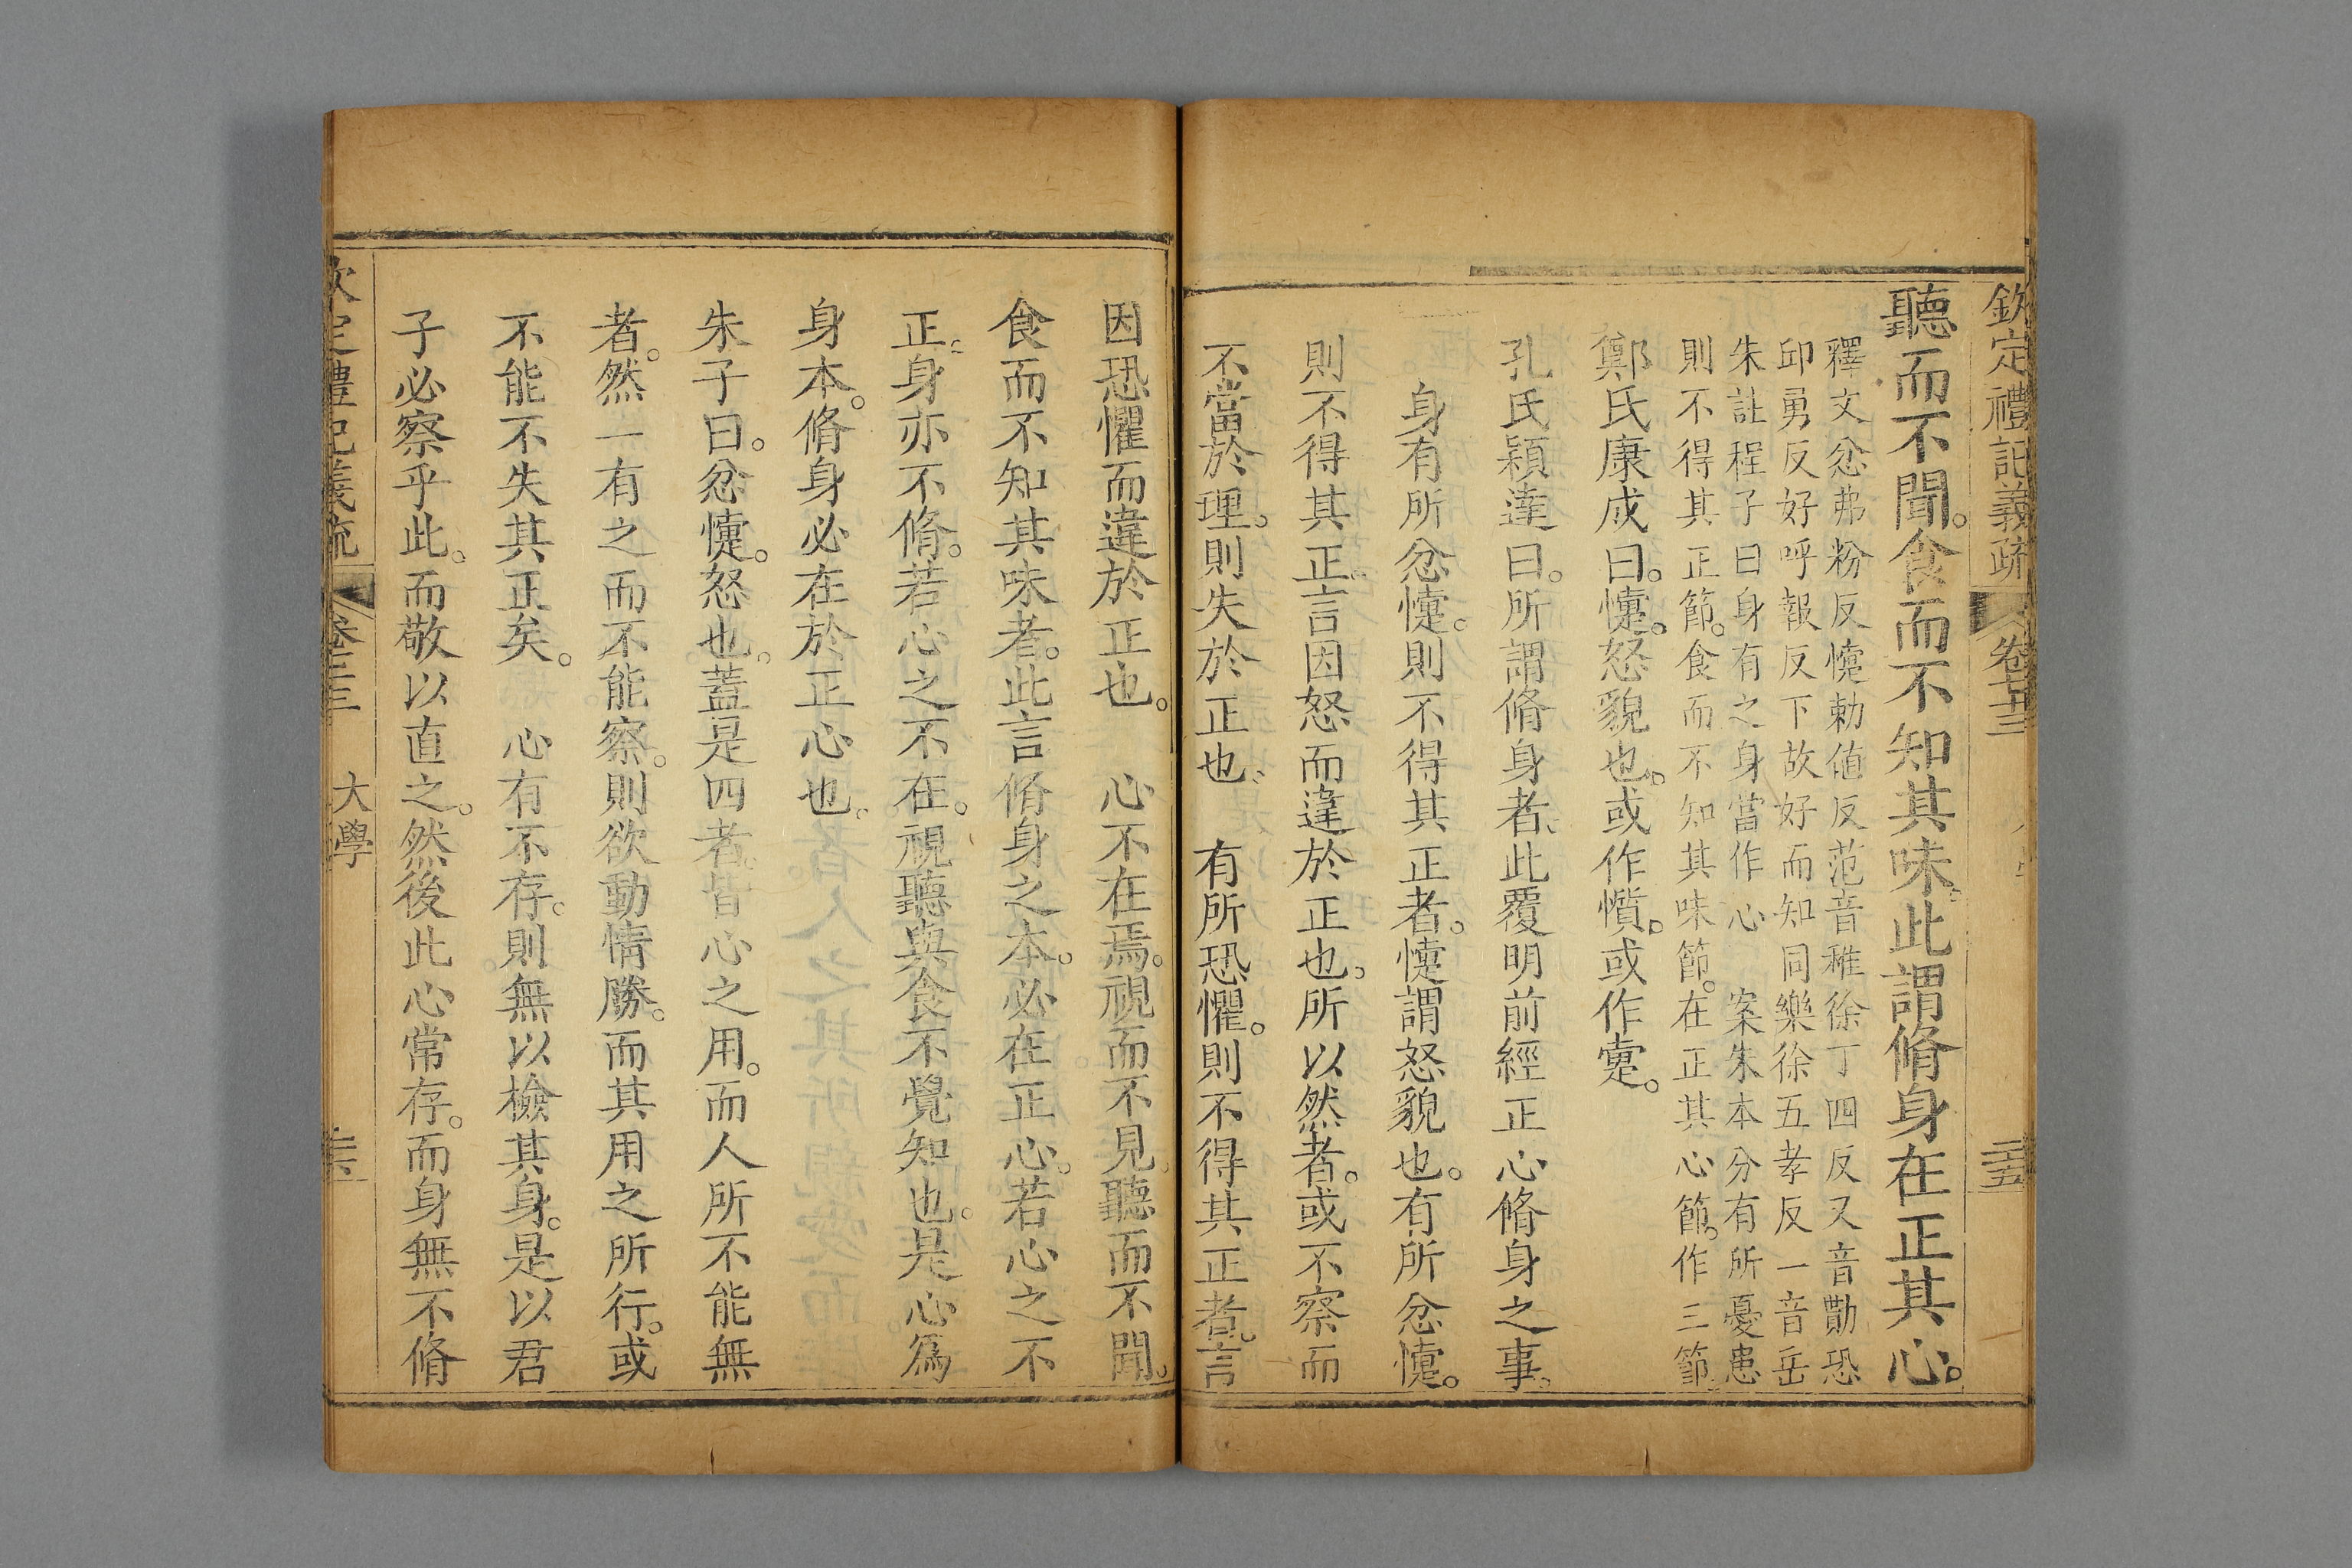 欽定禮記義疏 卷七十三 三五
聽而不聞。食而不知其味。此謂脩身在正其心。
釋文忿弗粉反懥勅値反范音稚徐丁四反又音勚恐
邱勇反好呼報反下故好而知同樂徐五孝反一音岳
朱註程子曰身有之身當作心 案朱本分有所憂患
則不得其正節。食而不知其味節。在正其心節。作三節
鄭氏康成曰。懥。怒貌也。或作懫。或作疐。
孔氏穎達曰。所謂脩身者。此覆明前經正心脩身之事。
身有所忿懥。則不得其正者。懥謂怒貌也。有所忿懥。
則不得其正。言因怒而違於正也。所以然者。或不察而
不當於理。則失於正也。 有所恐懼。則不得其正者。言
因恐懼而違於正也。 心不在焉。視而不見。聽而不聞。
食而不知其味者。此言脩身之本。必在正心。若心之不
正。身亦不脩。若心之不在。視聽與食不覺知也。是心爲
身本。脩身必在於正心也。
朱子曰。忿懥。怒也。蓋是四者。皆心之用。而人所不能無
者。然一有之而不能察。則欲動情勝。而其用之所行。或
不能不失其正矣。 心有不存。則無以檢其身。是以君
子必察乎此。而敬以直之。然後此心常存。而身無不脩
欽定禮記義疏 卷七十三 大學 三六